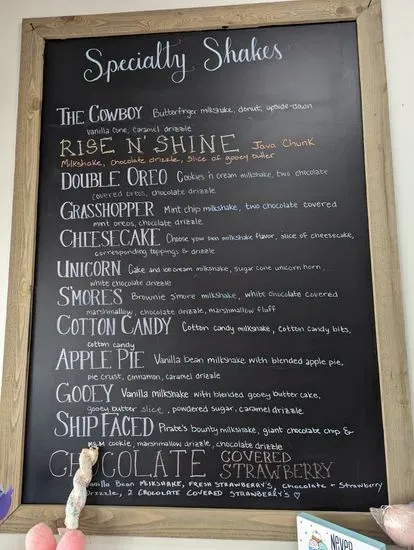 Specialty Shakes
THE COWBOY Butterfinger milkshake, donut, upside-down
vanilla cone, caramel drizzle
RISE N' SHINE Java Chunk
Milkshake, chocolate drizzle, slice of gooey butter
DOUBLE OREO Cookies n cream milkshake, two chocolate
covered oreos, chocolate drizzle
GRASSHOPPER Mint chip milkshake, two chocolate covered
mint oreos, chocolate drizzle
CHEESECAKE Choose your own milkshake flavor, slice of cheesecake,
corresponding toppings & drizzle
UNICORN Cake and ice cream milkshake, sugar cone unicorn horn,
white chocolate drizzle
S'MORES Brownie S'more milkshake, white chocolate covered
marshmallow, chocolate drizzle, marshmallow fluff
COTTON CANDY Cotton candy milkshake, cotton candy bits,
cotton candy
APPLE PIE Vanilla bean milkshake with blended apple pie,
pie crust, cinnamon, caramel drizzle
GOOEY Vanilla milkshake with blended gooey butter cake,
gooey butter slice, powdered sugar, caramel drizzle
SHIP FACED Pirate's bounty milkshake, giant chocolate chip &
M&M cookie, marshmallow drizzle, chocolate drizzle
CHOCOLATE COVERED
STRAWBERRY
Vanilla Bean MILKSHAKE, FRESH STRAWBERRY'S, chocolate - Strawberry
Drizzle, 2 CHOCOLATE COVERED STRAWBERRY'S ♡
NEVER